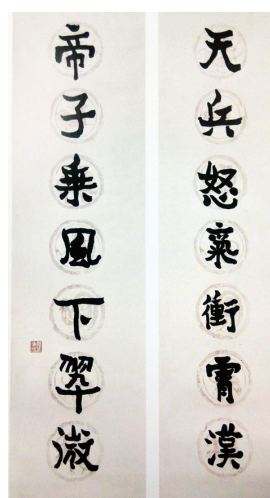 天兵怒氣衝霄漢
帝子乘風下翠微